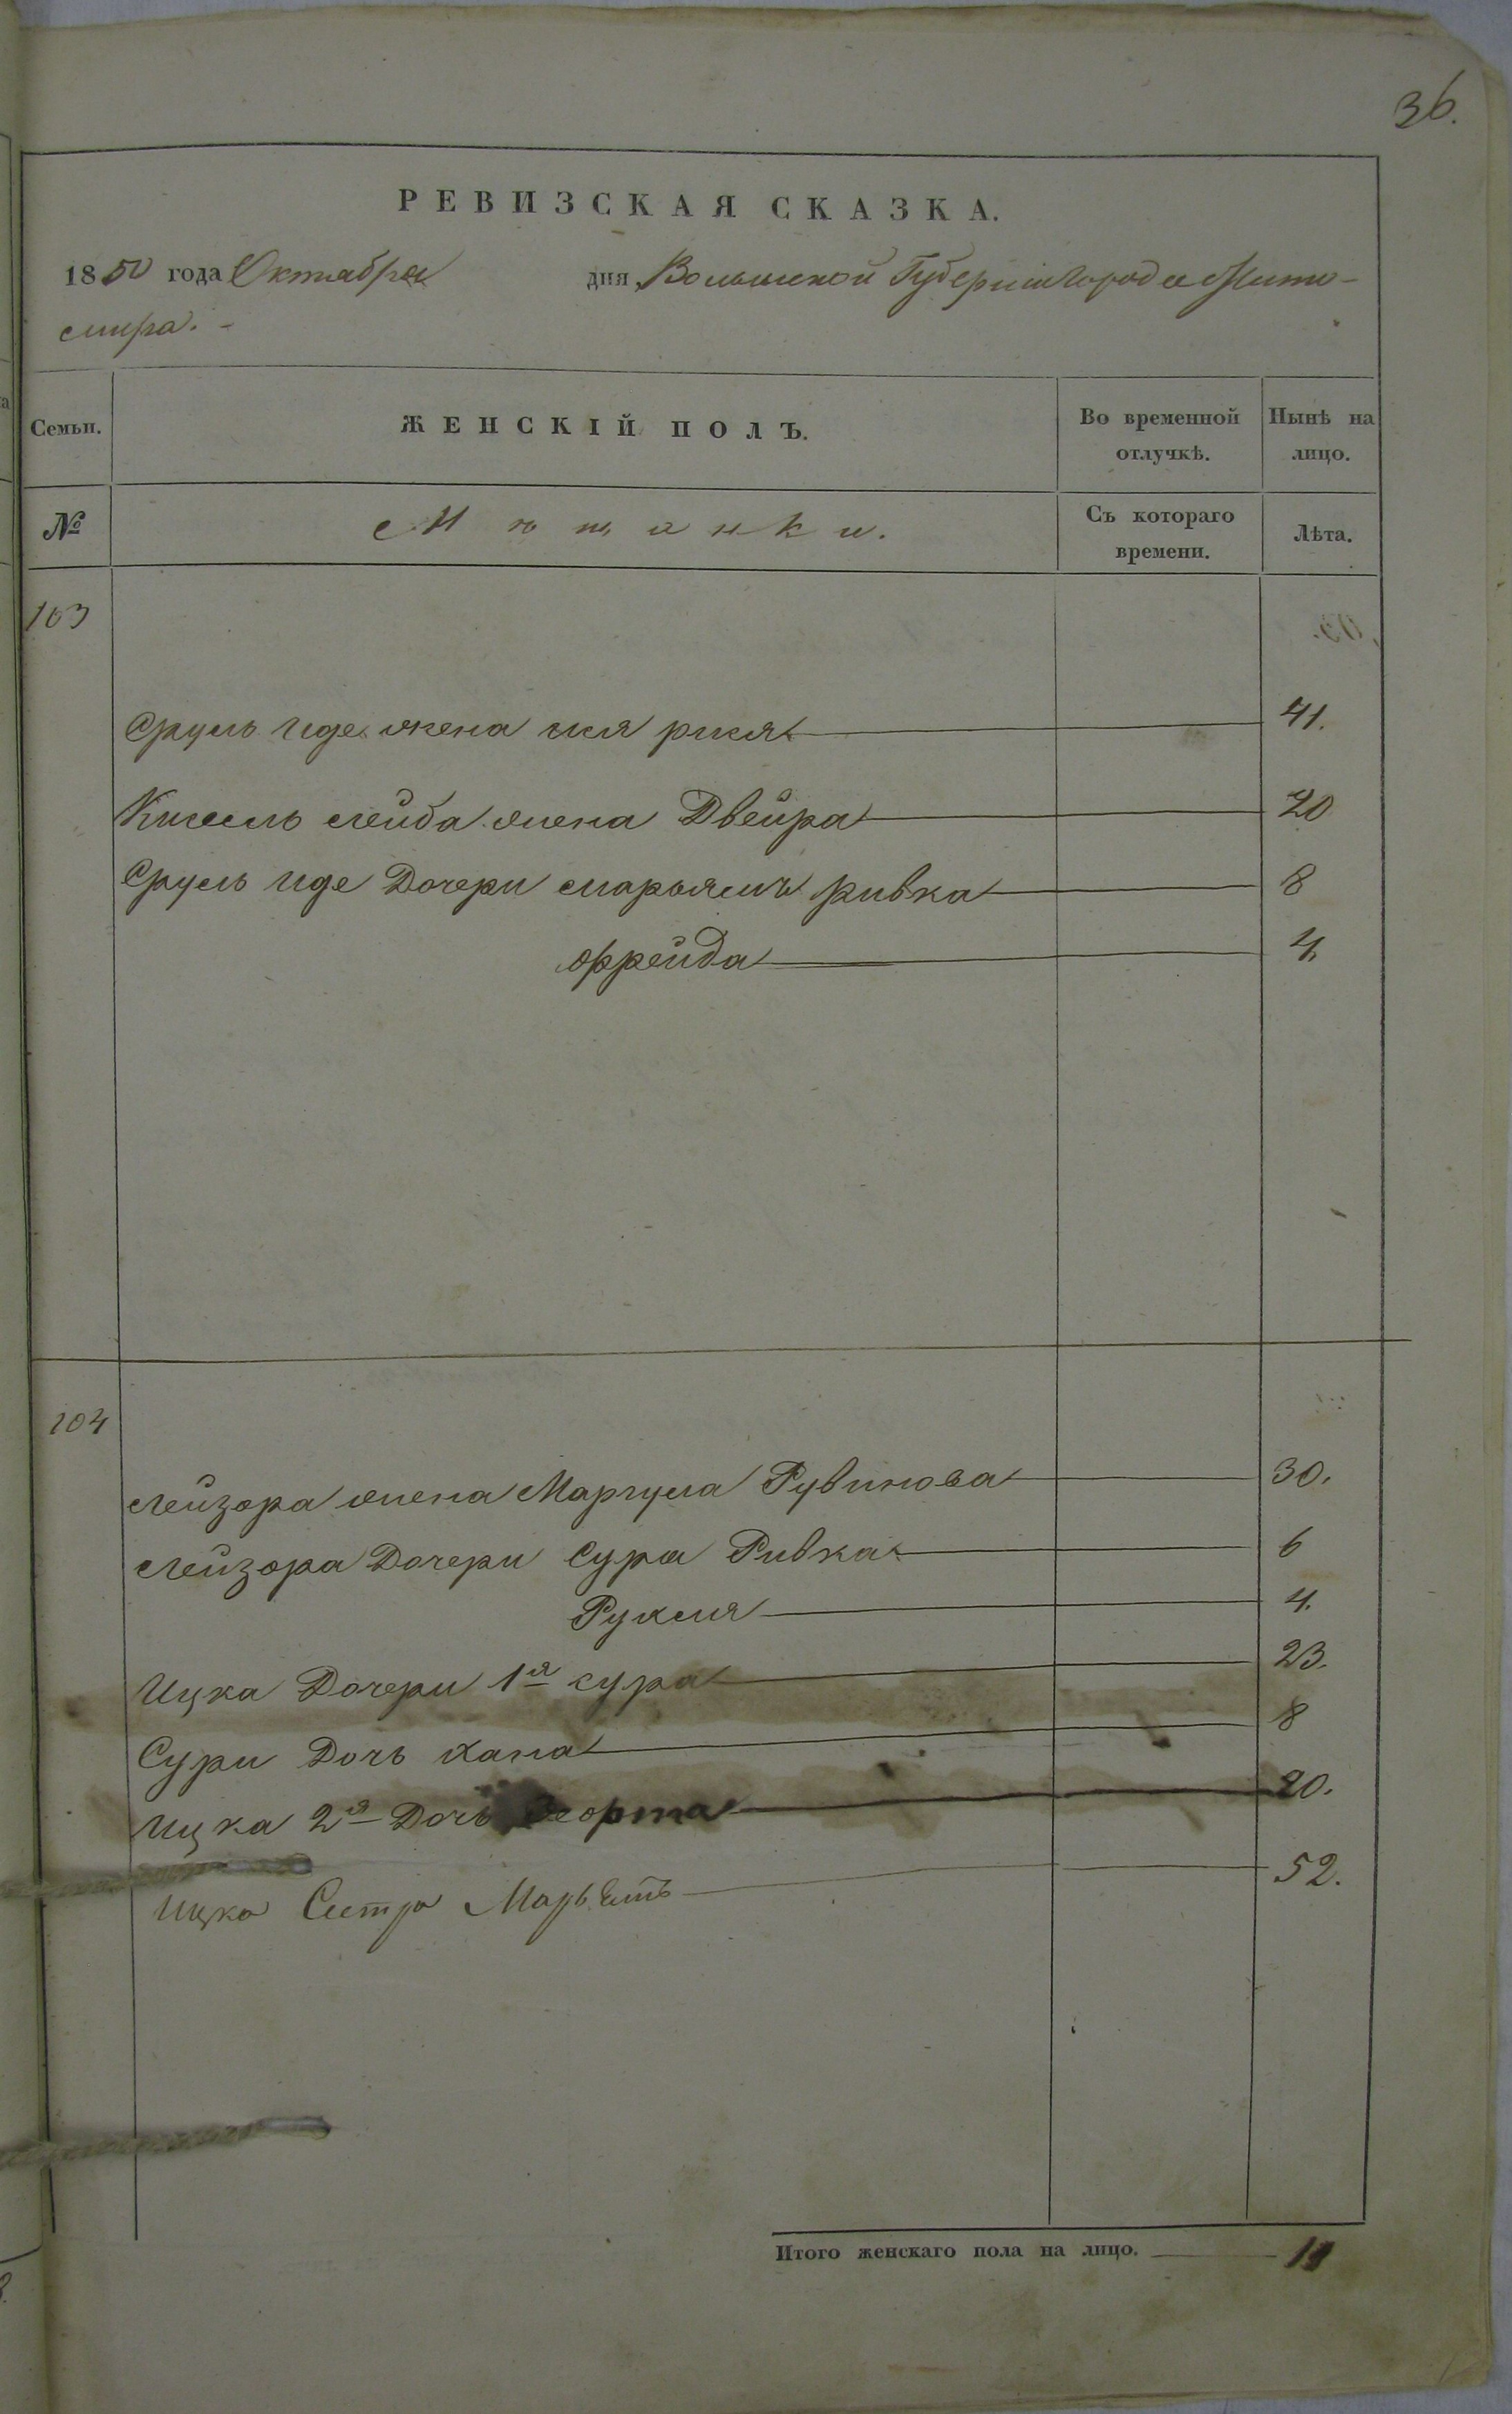 36.
РЕВИЗСКАЯ СКАЗКА.
1850 года Октября дня, Волынской Губернии Города Жито-
мира. -
Семьи. ЖЕНСКІЙ ПОЛЪ. Во временной отлучкѣ. Нынѣ на лицо.
№ Мѣщанки. Съ котораго времени. Лѣта.
103
Сруль Иде жена рися 41.
Кисель Лейба жена Двейра 20
Сруль Иде Дочери Марьямъ ривка 8
Фрейда 4
104
Лейзора жена Маргуля Рувинова 30.
Лейзора Дочери Сура Ривка 6
Рухля 4.
Ицка Дочери 1я сура 23.
Суры Дочь хана 8
Ицка 2я Дочь 20.
Ицка Сестра 52.
Итого женскаго пола на лицо. 11